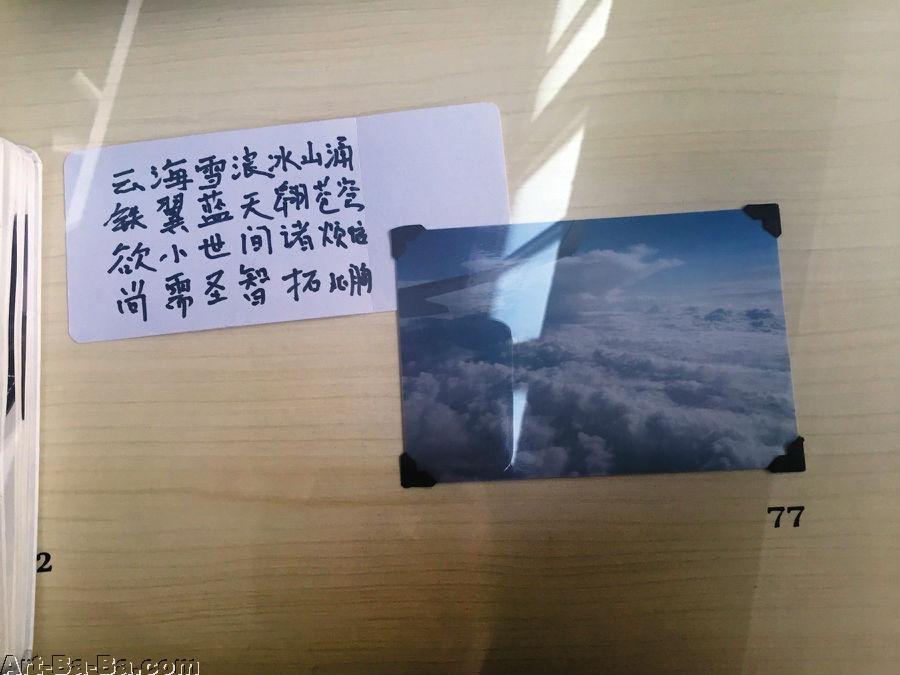 云海雪浪冰山涌
铁翼蓝天翱苍空
欲小世间诸烦恼
尚需圣智拓心胸
77
2
Art-Ba-Ba.com